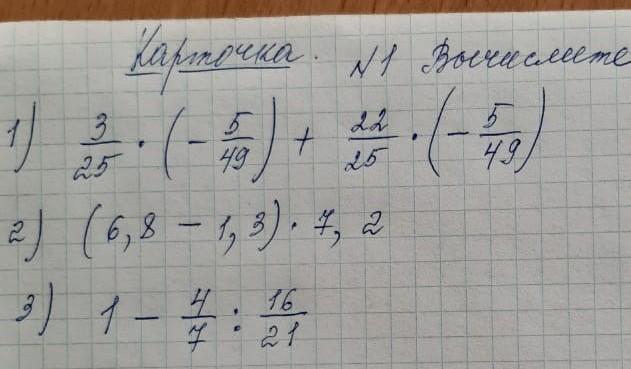 Карточка. №1 Вычислите
1) 3/25 · (- 5/49) + 22/25 · (- 5/49)
2) (6,8 - 1,3) · 7,2
3) 1 - 4/7 : 16/21